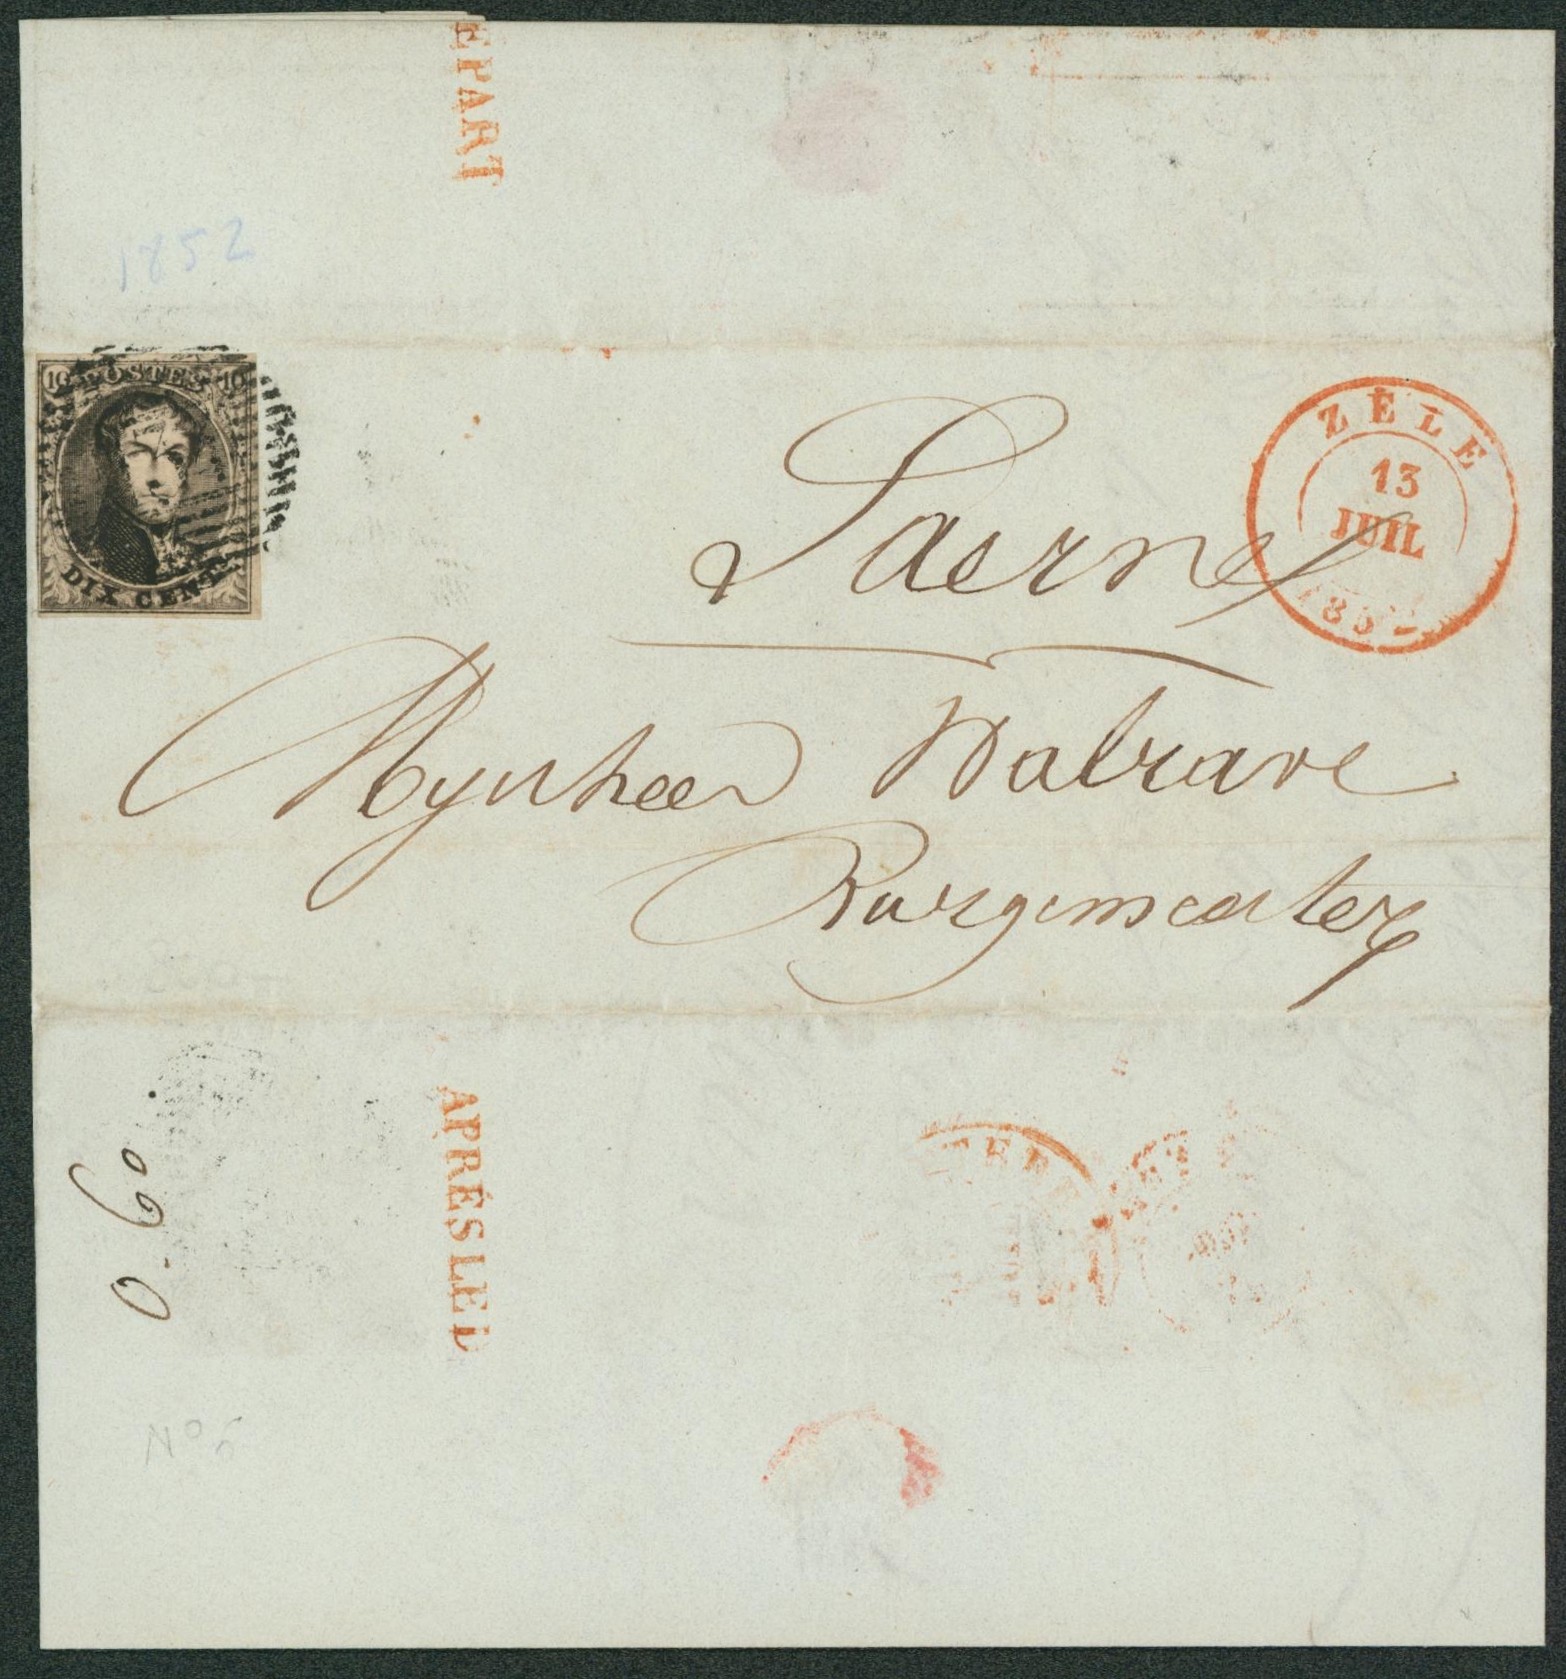 EPART
1852
10 POSTES 10
DIX CENT
ZELE
13
JUIL
1852
Laerne
Mynheer Walrave
Burgemeester
APRÈS LE D
0-60
No 6